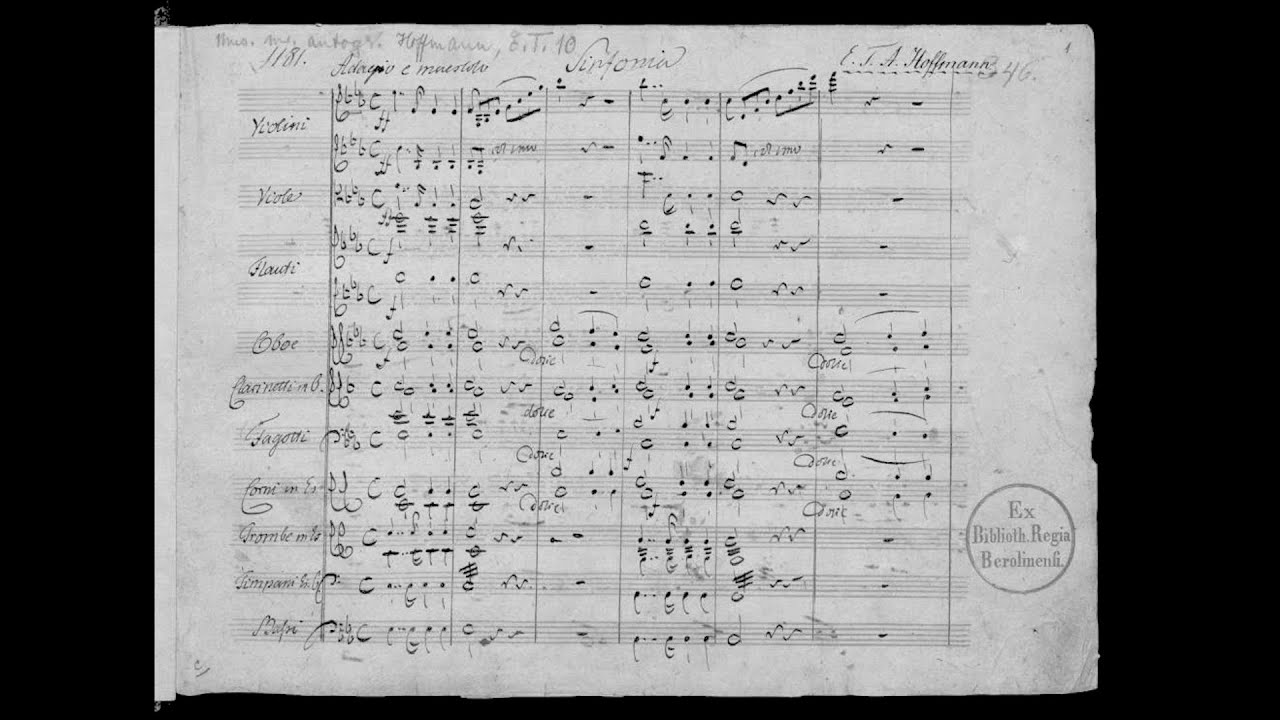 Mus. ms. autogr. Hoffmann, E. T. 10
1181.
Adagio e maestoso
Sinfonia
E. T. A. Hoffmann
346.
1
Violini
ff
ff
col imo
col imo
Viole
ff
Flauti
f
f
Oboe
f
Dolce
f
Dolce
Clarinetti in B.
dolce
f
Dolce
Fagotti
Dolce
f
Dolce
Corni in Es
Dolce
f
Dolce
Trombe in Es
Timpani Es B
Bassi
Ex
Biblioth. Regia
Berolinensi.